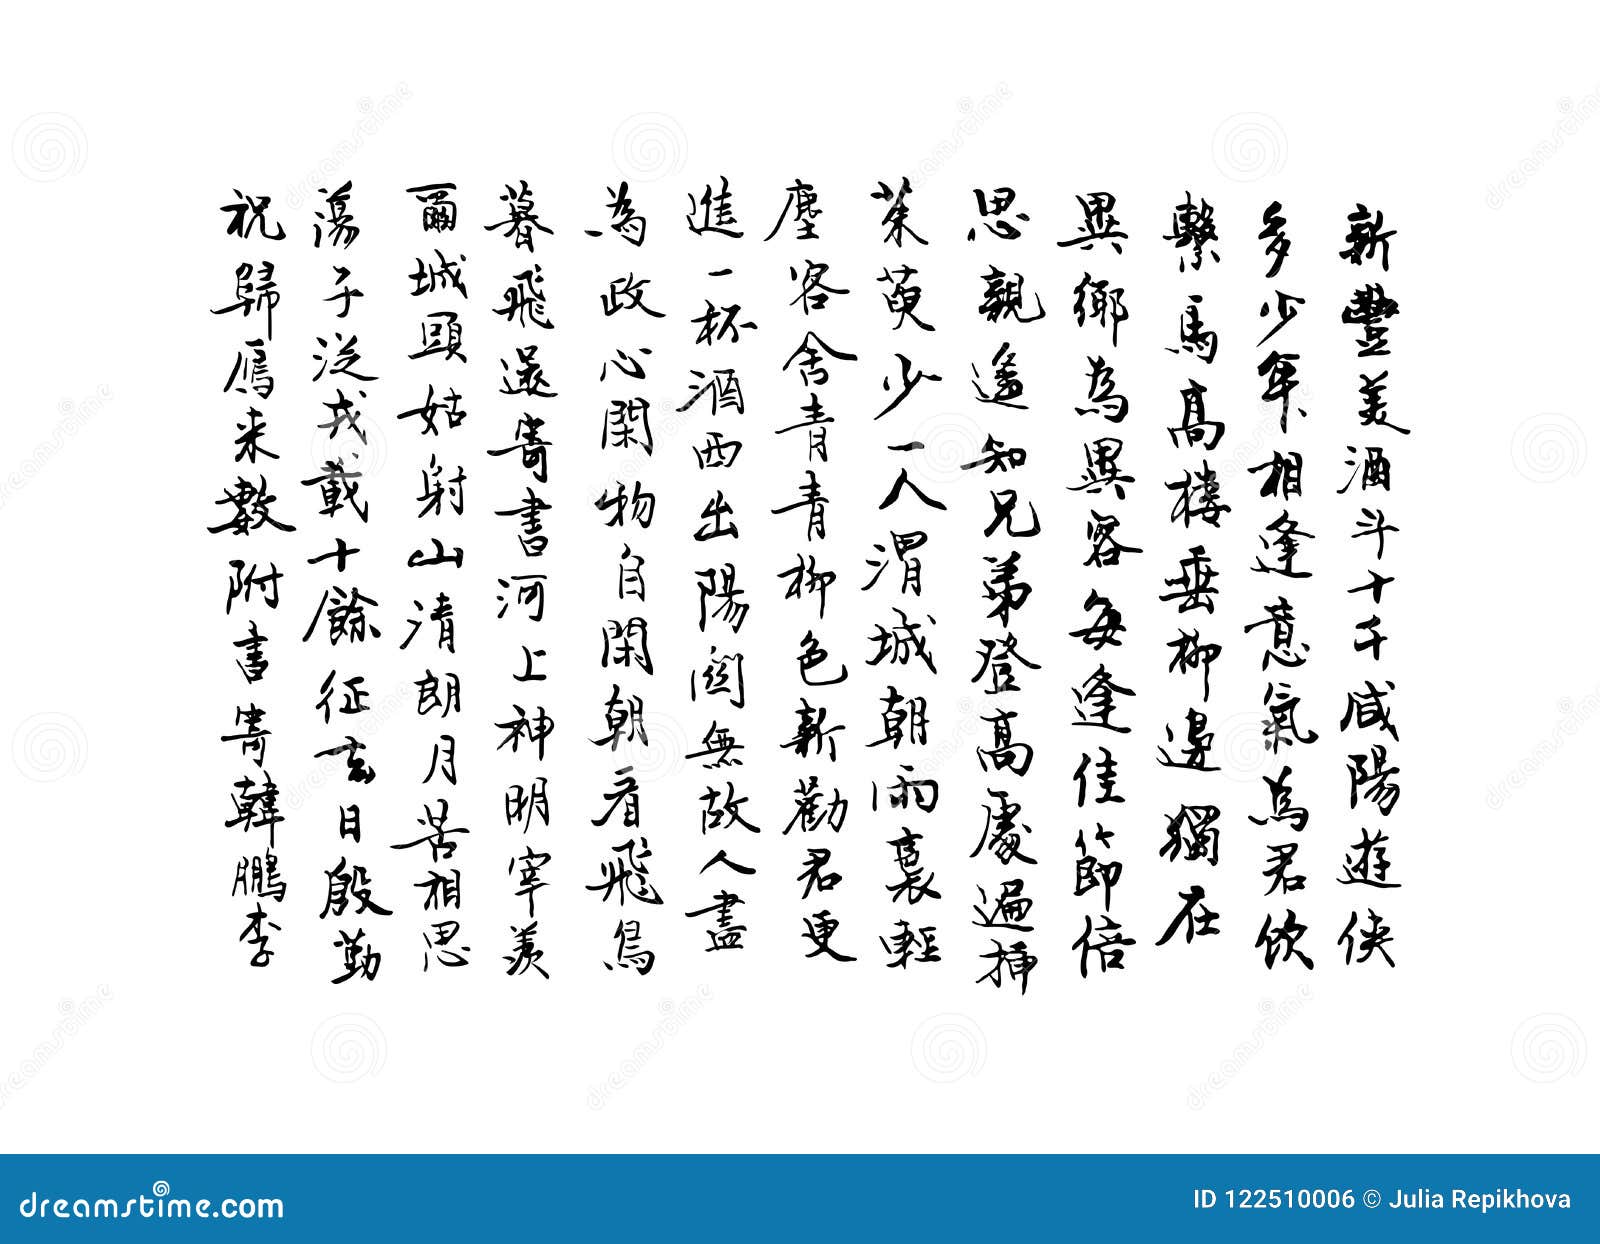 新豐美酒斗十千咸陽遊俠
多少年相逢意氣為君飲
繫馬高樓垂柳邊獨在
異鄉為異客每逢佳節倍
思親遙知兄弟登高處遍插
茱萸少一人渭城朝雨裛輕
塵客舍青青柳色新勸君更
進一杯酒西出陽關無故人盡
為政心閑物自閑朝看飛鳥
暮飛還寄書河上神明宰羨
爾城頭姑射山清朗月苦相思
蕩子從戎載十餘征玄日殷勤
祝歸雁來數附書寄韓鵬李
dreamstime.com
ID 122510006 © Julia Repikhova